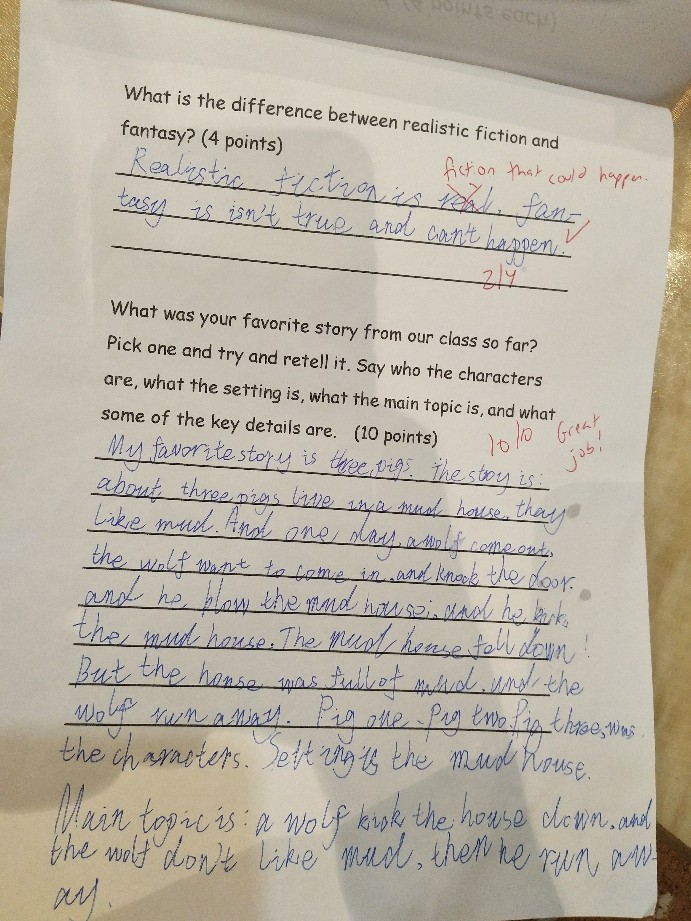 (4 points each)
What is the difference between realistic fiction and
fantasy? (4 points)
fiction that could happen.
Realistic fiction is real. fan-
tasy is isn't true and can't happen.
2/4
What was your favorite story from our class so far?
Pick one and try and retell it. Say who the characters
are, what the setting is, what the main topic is, and what
some of the key details are. (10 points)
10/10 Great
job!
My favorite story is three pigs. The stoy is:
about three pigs live in a mud house, they
like mud. And one day, a wolf come out,
the wolf want to come in, and knock the door.
and he blow the mud house, and he kick
the mud house. The mud house fall down!
But the house was full of mud, and the
wolf run away. Pig one, Pig two, Pig three, was
the characters. Setting is the mud house.
Main topic is: a wolf kick the house down, and
the wolf don't like mud, then he run aw-
ay.